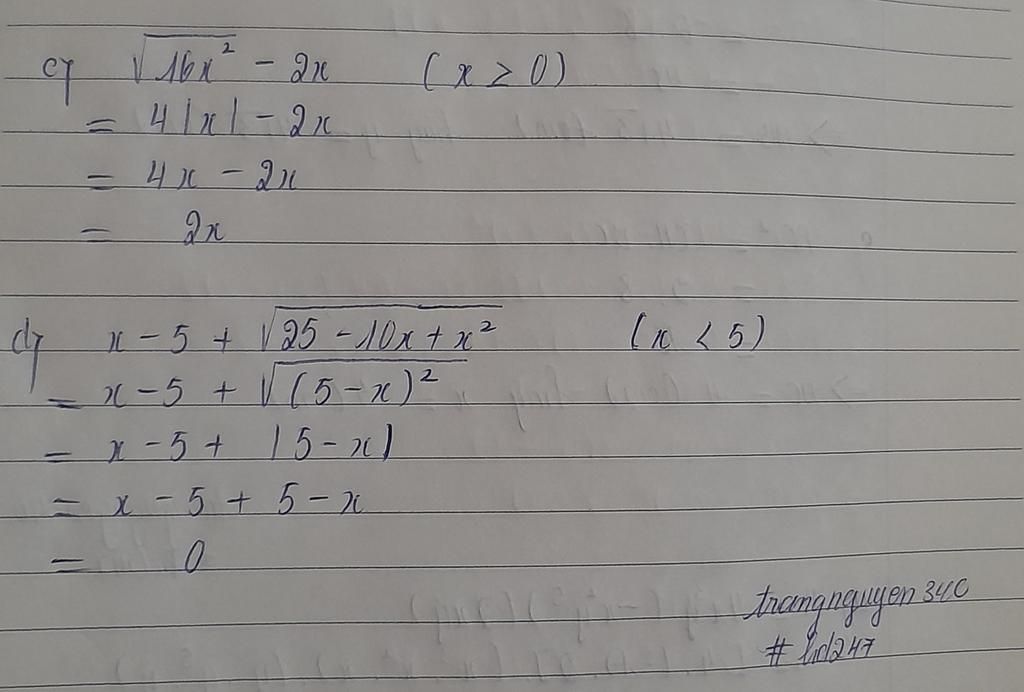 c) √16x² - 2x (x ≥ 0)
= 4|x| - 2x
= 4x - 2x
= 2x
d) x - 5 + √25 - 10x + x² (x < 5)
= x - 5 + √(5 - x)²
= x - 5 + |5 - x|
= x - 5 + 5 - x
= 0
trangnguyen340